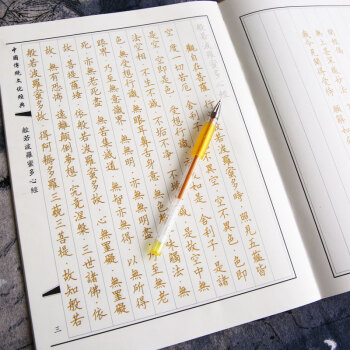 般若波羅蜜多心經
觀自在菩薩 羅蜜多時·照見五蘊皆
空·度一切苦厄 空·空不異色·色即
是空·空即是色·受想行識 如是·舍利子·是諸
法空相·不生不滅·不垢不淨 是故空中無
色·無受想行識·無眼耳鼻舌身意 味觸法·無
眼界·乃至無意識界·無無明·亦無 至無老
死·亦無老死盡·無苦集滅道·無智亦無得·以無所得
故·菩提薩埵·依般若波羅蜜多故·心無罣礙·無罣礙
故·無有恐怖·遠離顛倒夢想·究竟涅槃·三世諸佛·依
般若波羅蜜多故·得阿耨多羅三藐三菩提·故知般若
中國傳統文化經典
般若波羅蜜多心經
三